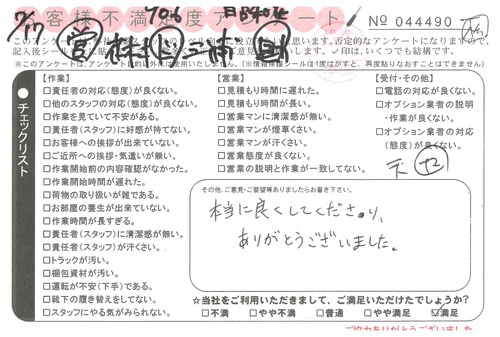 お客様不満足度アンケート
No 044490
※このアンケートは、アンケート目的以外は使用いたしません。
チェックリスト
【作業】
□責任者の対応(態度)が良くない。
□他のスタッフの対応(態度)が良くない。
□作業を見ていて不安がある。
□責任者(スタッフ)に好感が持てない。
□お客様への挨拶が出来ていない。
□ご近所への挨拶・気遣いが無い。
□作業開始前の内容確認がなかった。
□作業開始時間が遅れた。
□荷物の取り扱いが雑である。
□お部屋の養生が出来ていない。
□作業時間が長すぎる。
□責任者(スタッフ)に清潔感が無い。
□責任者(スタッフ)が汗くさい。
□トラックが汚い。
□梱包資材が汚い。
□運転が不安(下手)である。
□靴下の履き替えをしてない。
□スタッフにやる気がみられない。
【営業】
□見積もり時間に遅れた。
□見積もり時間が長い。
□営業マンに清潔感が無い。
□営業マンが煙草くさい。
□営業マンが汗くさい。
□営業態度が良くない。
□営業の説明と作業が一致してない。
【受付・その他】
□電話の対応が良くない。
□オプション業者の説明
・作業が良くない。
□オプション業者の対応
(態度)が良くない。
その他、ご意見・ご要望等ありましたらお書き下さい。
本当に良くしてくださり、
ありがとうございました。
☆当社をご利用いただきまして、ご満足いただけたでしょうか?
□不満 □やや不満 □普通 □やや満足 ☑満足
ご協力ありがとうございました